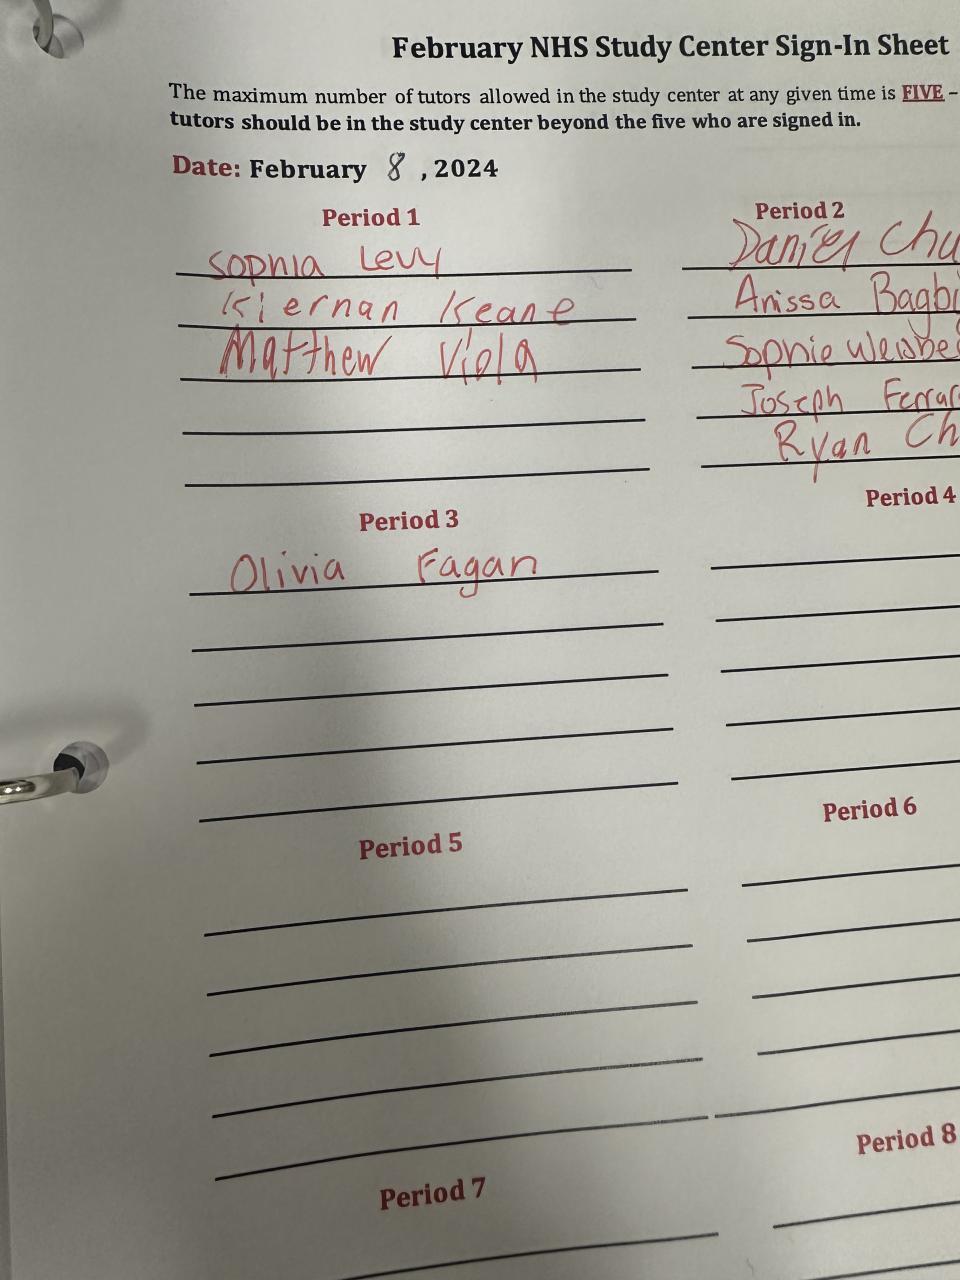 February NHS Study Center Sign-In Sheet
The maximum number of tutors allowed in the study center at any given time is FIVE –
tutors should be in the study center beyond the five who are signed in.
Date: February 8, 2024
Period 1
Sophia Levy
Kiernan Keane
Matthew Viola
Period 2
Daniel Chu
Anissa Bagbi
Sophie Weisbe
Joseph Ferrar
Ryan Ch
Period 3
Olivia Fagan
Period 4
Period 5
Period 6
Period 7
Period 8